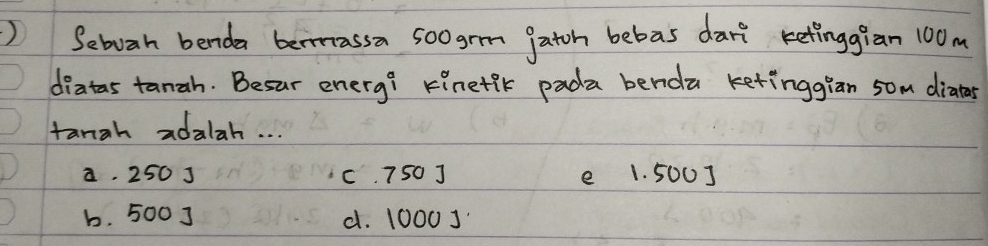 ) Sebuah benda bermassa 500 grm jatuh bebas dari ketinggian 100 m
diatas tanah. Besar energi kinetik pada benda ketinggian 50 m diatas
tanah adalah ...
a. 250 J c. 750 J e 1.500 J
b. 500 J d. 1000 J